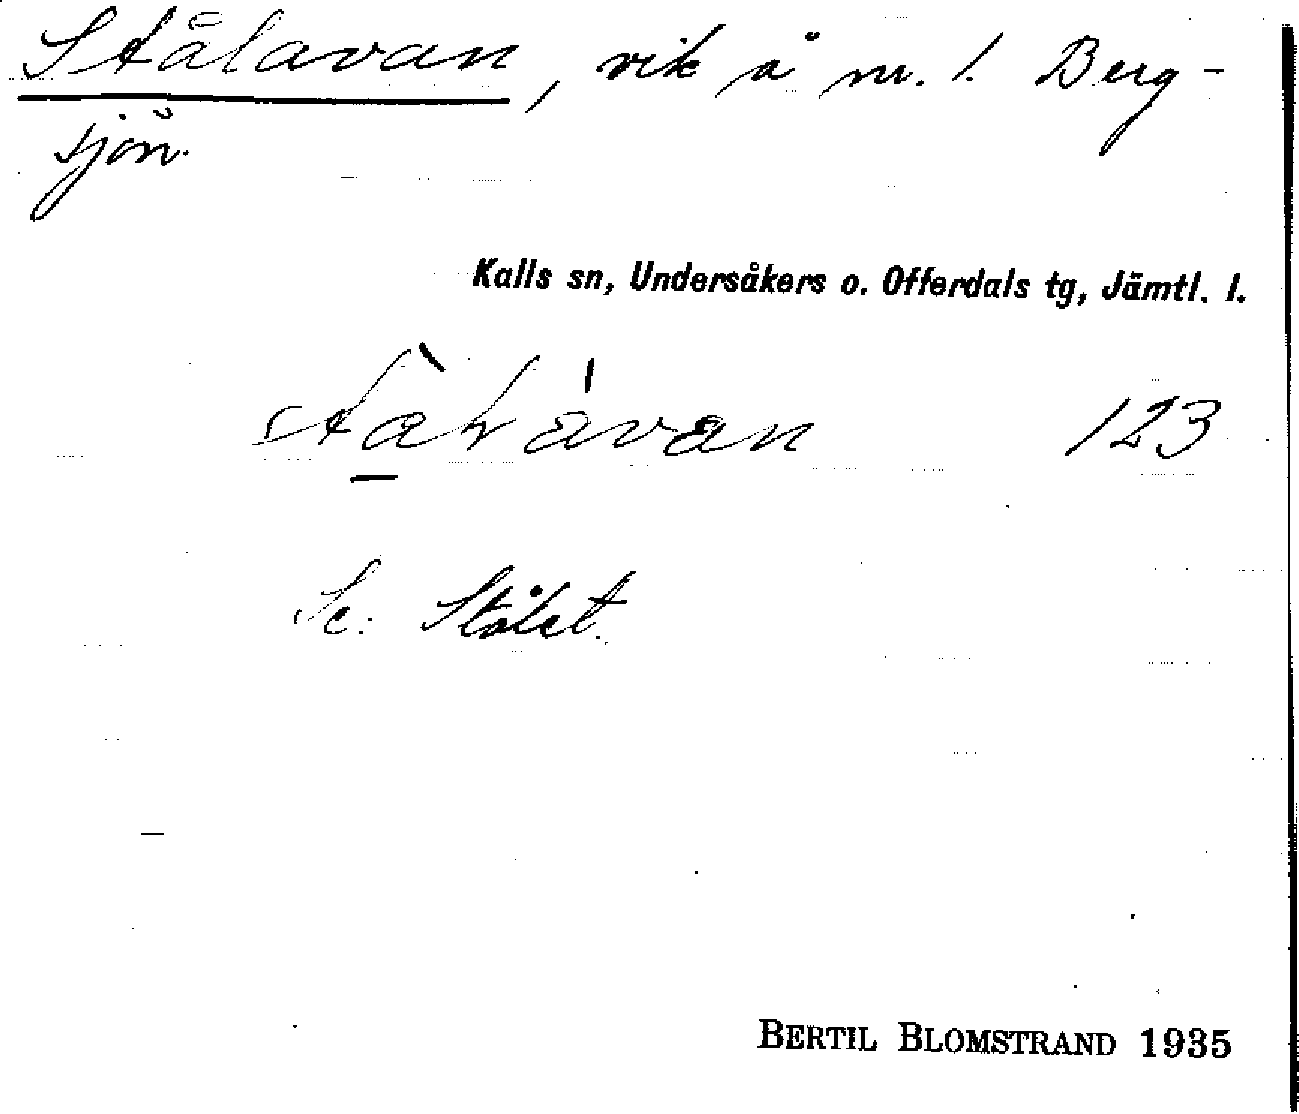 Stålavan, vik å nr. 1. Berg-
sjön.
Kalls sn, Undersåkers o. Offerdals tg, Jämtl. l.
123
Se: Stålet.
BERTIL BLOMSTRAND 1935